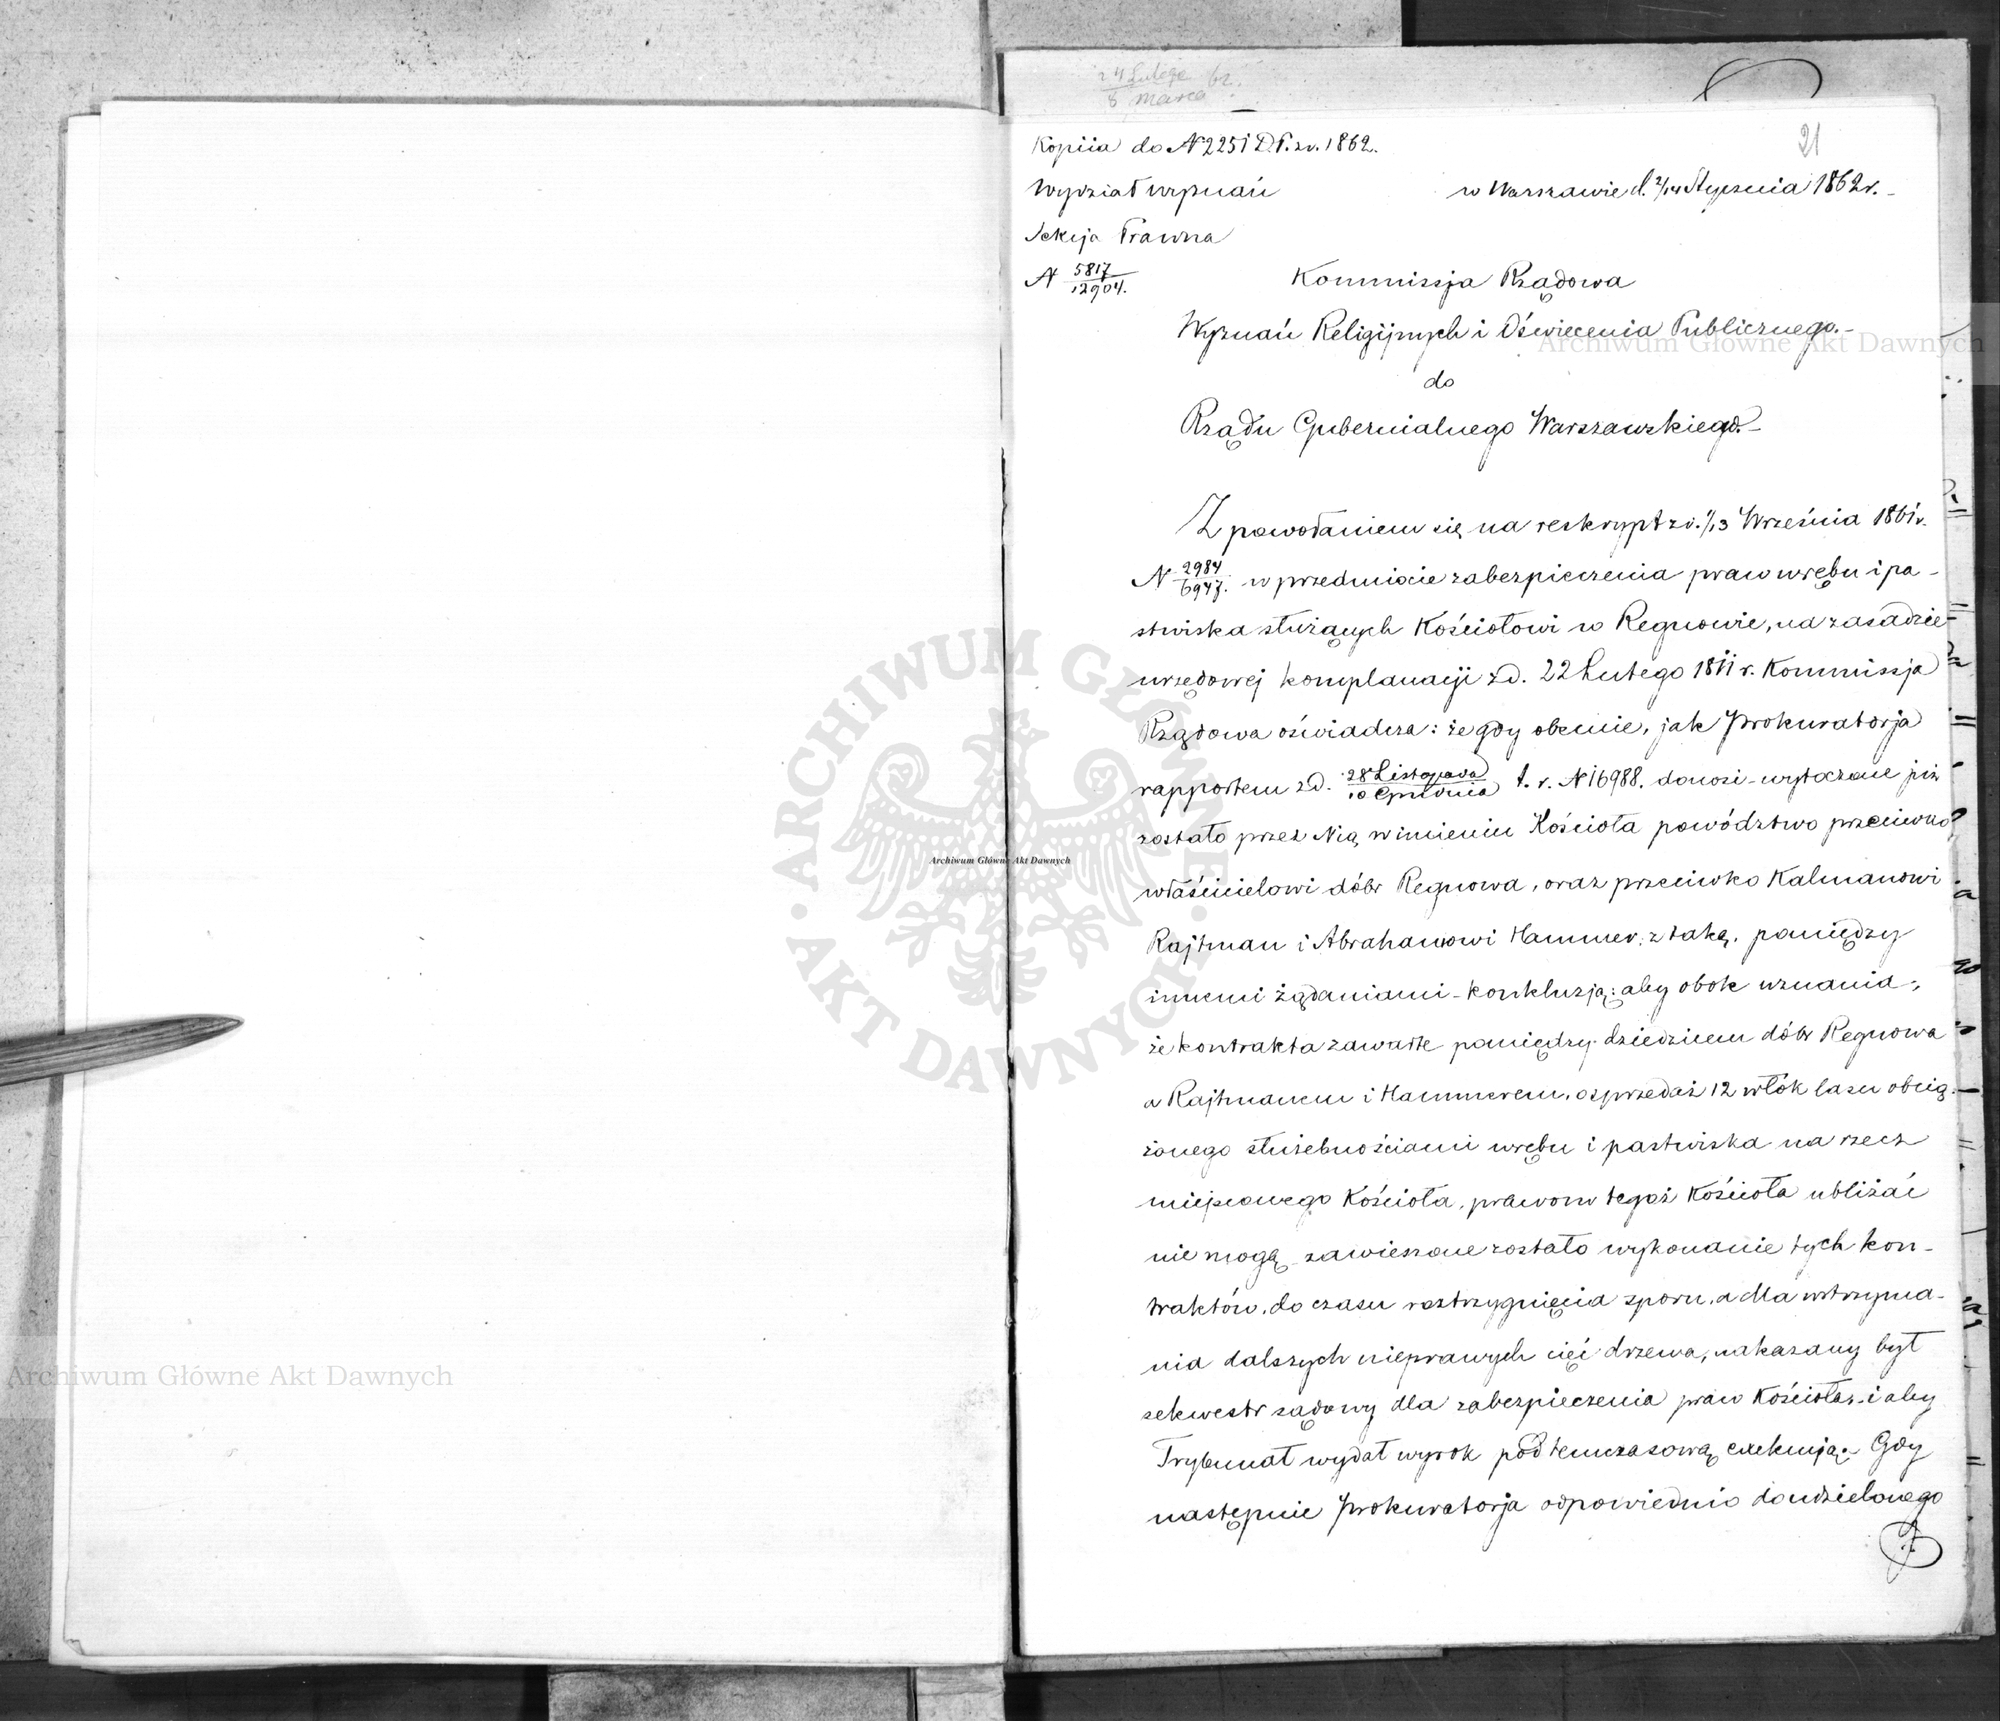 24 Lutego 62.
8 Marca
Kopiia do N 2251 D.P. z r. 1862.
21
Wydział wyznań
w Warszawie d. 2/14 Stycznia 1862 r.
Sekcja Prawna
N 5817/12904.
Kommissja Rządowa
Wyznań Religijnych i Oświecenia Publicznego.-
do
Rządu Gubernialnego Warszawskiego.-
Z powołaniem się na reskrypt z d. 1/13 Września 1861 r.
N 2984/6947. w przedmiocie zabezpieczenia praw wrębu i pa-
stwiska służących Kościołowi w Regnowie, na zasadzie
urzędowej komplanacji z d. 22 Lutego 1811 r. Kommissja
Rządowa oświadcza: że gdy obecnie, jak Prokuratorja
rapportem z d. 28 Listopada/10 Grudnia t. r. N 16988. donosi - wytoczone już
zostało przez Nią w imieniu Kościoła powództwo przeciwko
właścicielowi dóbr Regnowa, oraz przeciwko Kalmanowi
Rajtman i Abrahamowi Hammer, z taką, pomiędzy
innemi żądaniami - konkluzją: aby obok uznania,
że kontrakta zawarte pomiędzy dziedzicem dóbr Regnowa
a Rajtmanem i Hammerem, o sprzedaż 12 włók lasu obcią-
żonego służebnościami wrębu i pastwiska na rzecz
miejscowego Kościoła, prawom tegoż Kościoła ubliżać
nie mogą zawieszone zostało wykonanie tych kon-
traktów, do czasu rozstrzygnięcia sporu, a dla wstrzyma-
nia dalszych nieprawych cięć drzewa, nakazany był
sekwestr sądowy dla zabezpieczenia praw Kościoła, i aby
Trybunał wydał wyrok pod temczasową exekucją.- Gdy
następnie Prokuratorja odpowiednio do udzielonego
Archiwum Główne Akt Dawnych
ARCHIWUM GŁÓWNE AKT DAWNYCH
Archiwum Główne Akt Dawnych
Archiwum Główne Akt Dawnych